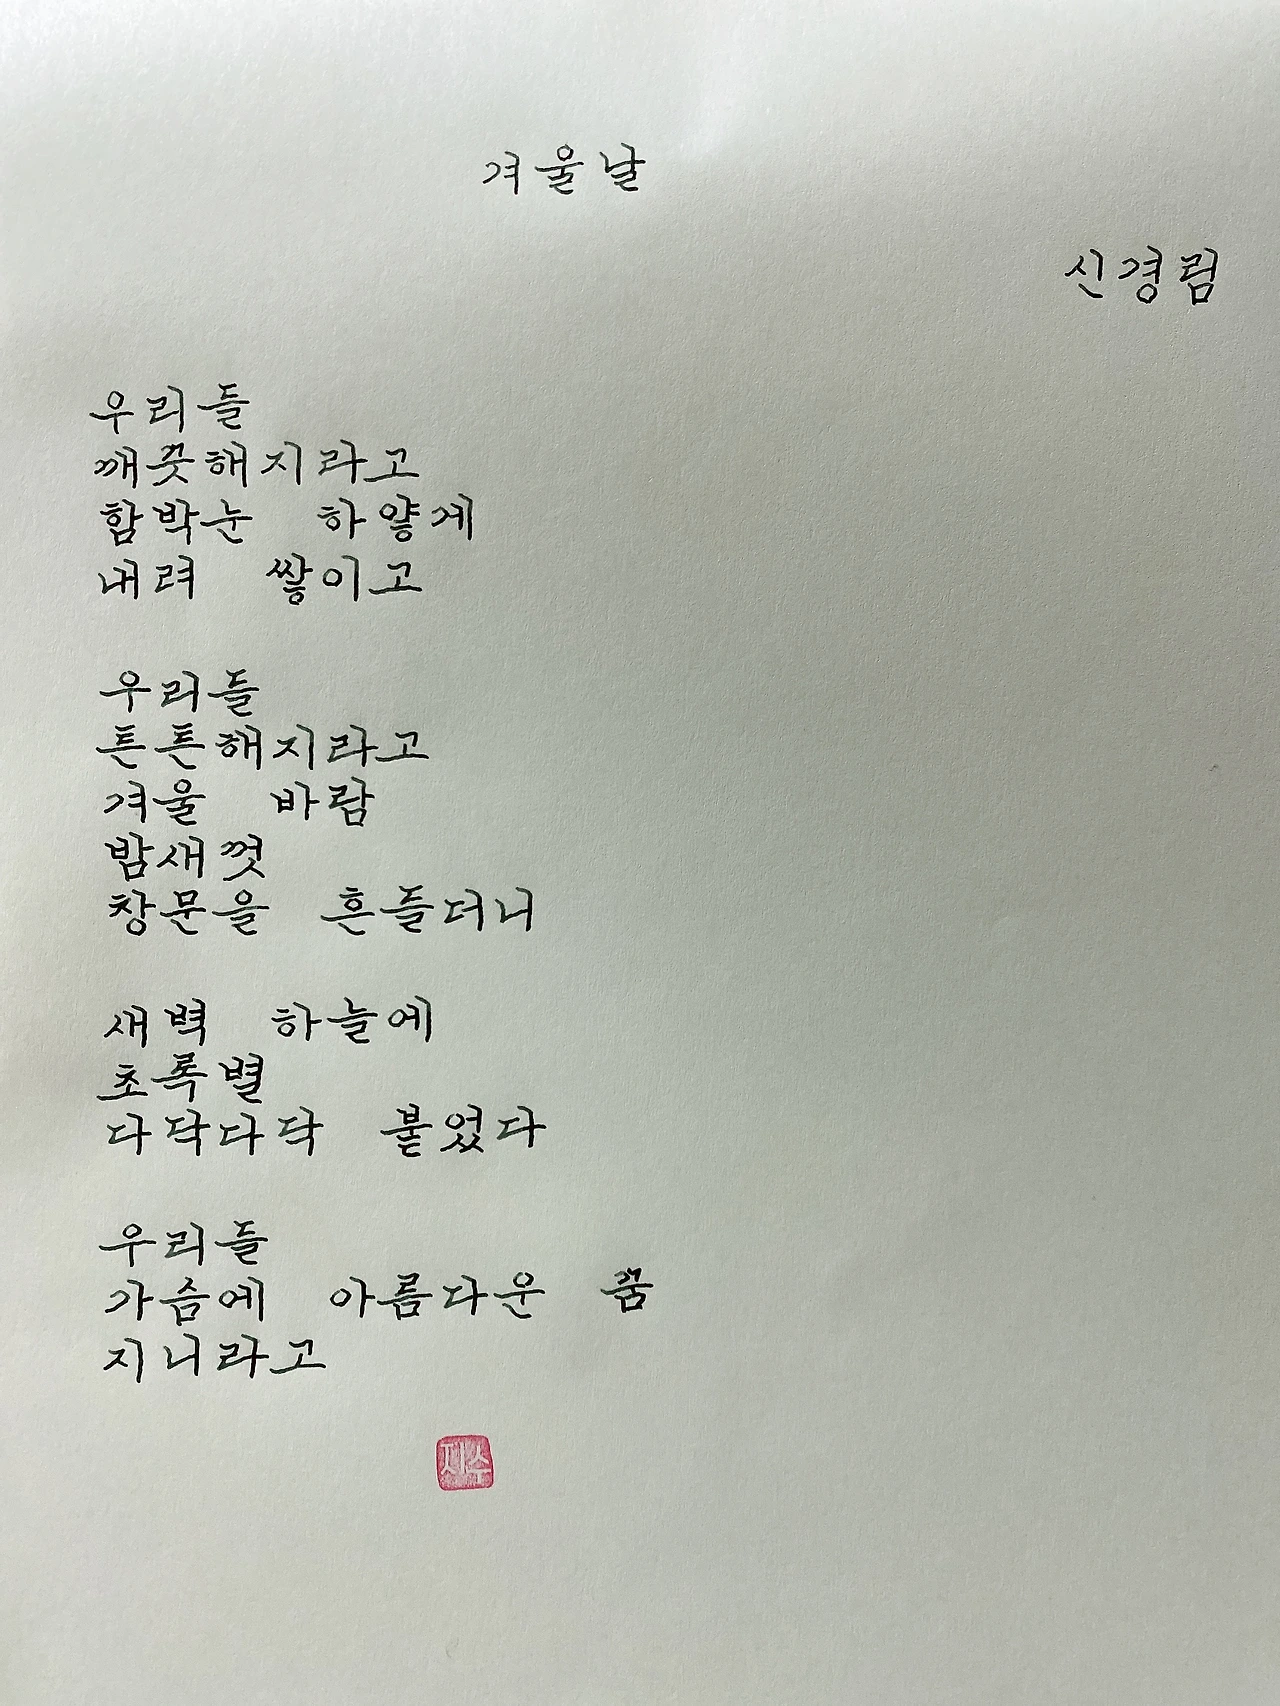 겨울날
신경림
우리들
깨끗해지라고
함박눈 하얗게
내려 쌓이고
우리들
튼튼해지라고
겨울 바람
밤새껏
창문을 흔들더니
새벽 하늘에
초록별
다닥다닥 붙었다
우리들
가슴에 아름다운 꿈
지니라고